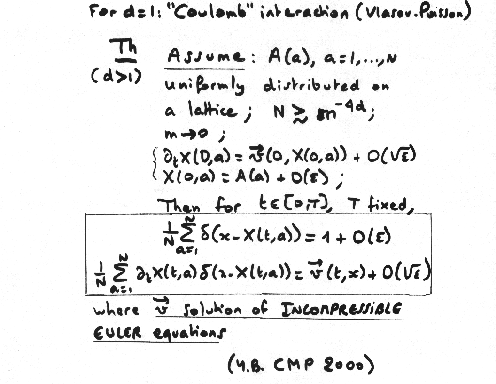 For d=1: "Coulomb" interaction (Vlasov-Poisson)
Th (d>1) Assume: A(a), a=1,...,N
uniformly distributed on
a lattice; N ≳ εm^{-4d};
m→0;
{ ∂_t X(0,a) = v⃗(0, X(0,a)) + O(√ε)
X(0,a) = A(a) + O(ε);
Then for t∈[0,T], T fixed,
1/N Σ_{a=1}^{N} δ(x-X(t,a)) = 1 + O(ε)
1/N Σ_{a=1}^{N} ∂_t X(t,a) δ(x-X(t,a)) = v⃗(t,x) + O(√ε)
where v⃗ solution of INCOMPRESSIBLE
EULER equations
(Y.B. CMP 2000)